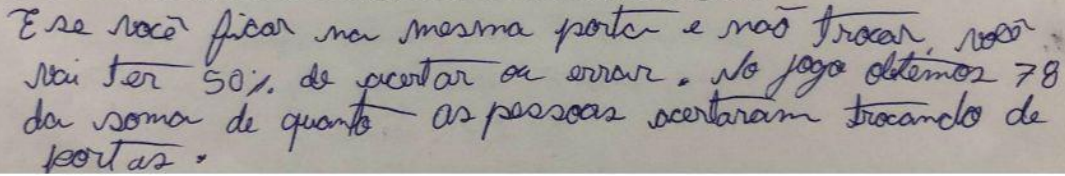 E se você ficar na mesma porta e não trocar, você
vai ter 50%. de acertar ou errar. No jogo obtemos 78
da soma de quanto as pessoas acertaram trocando de
portas.